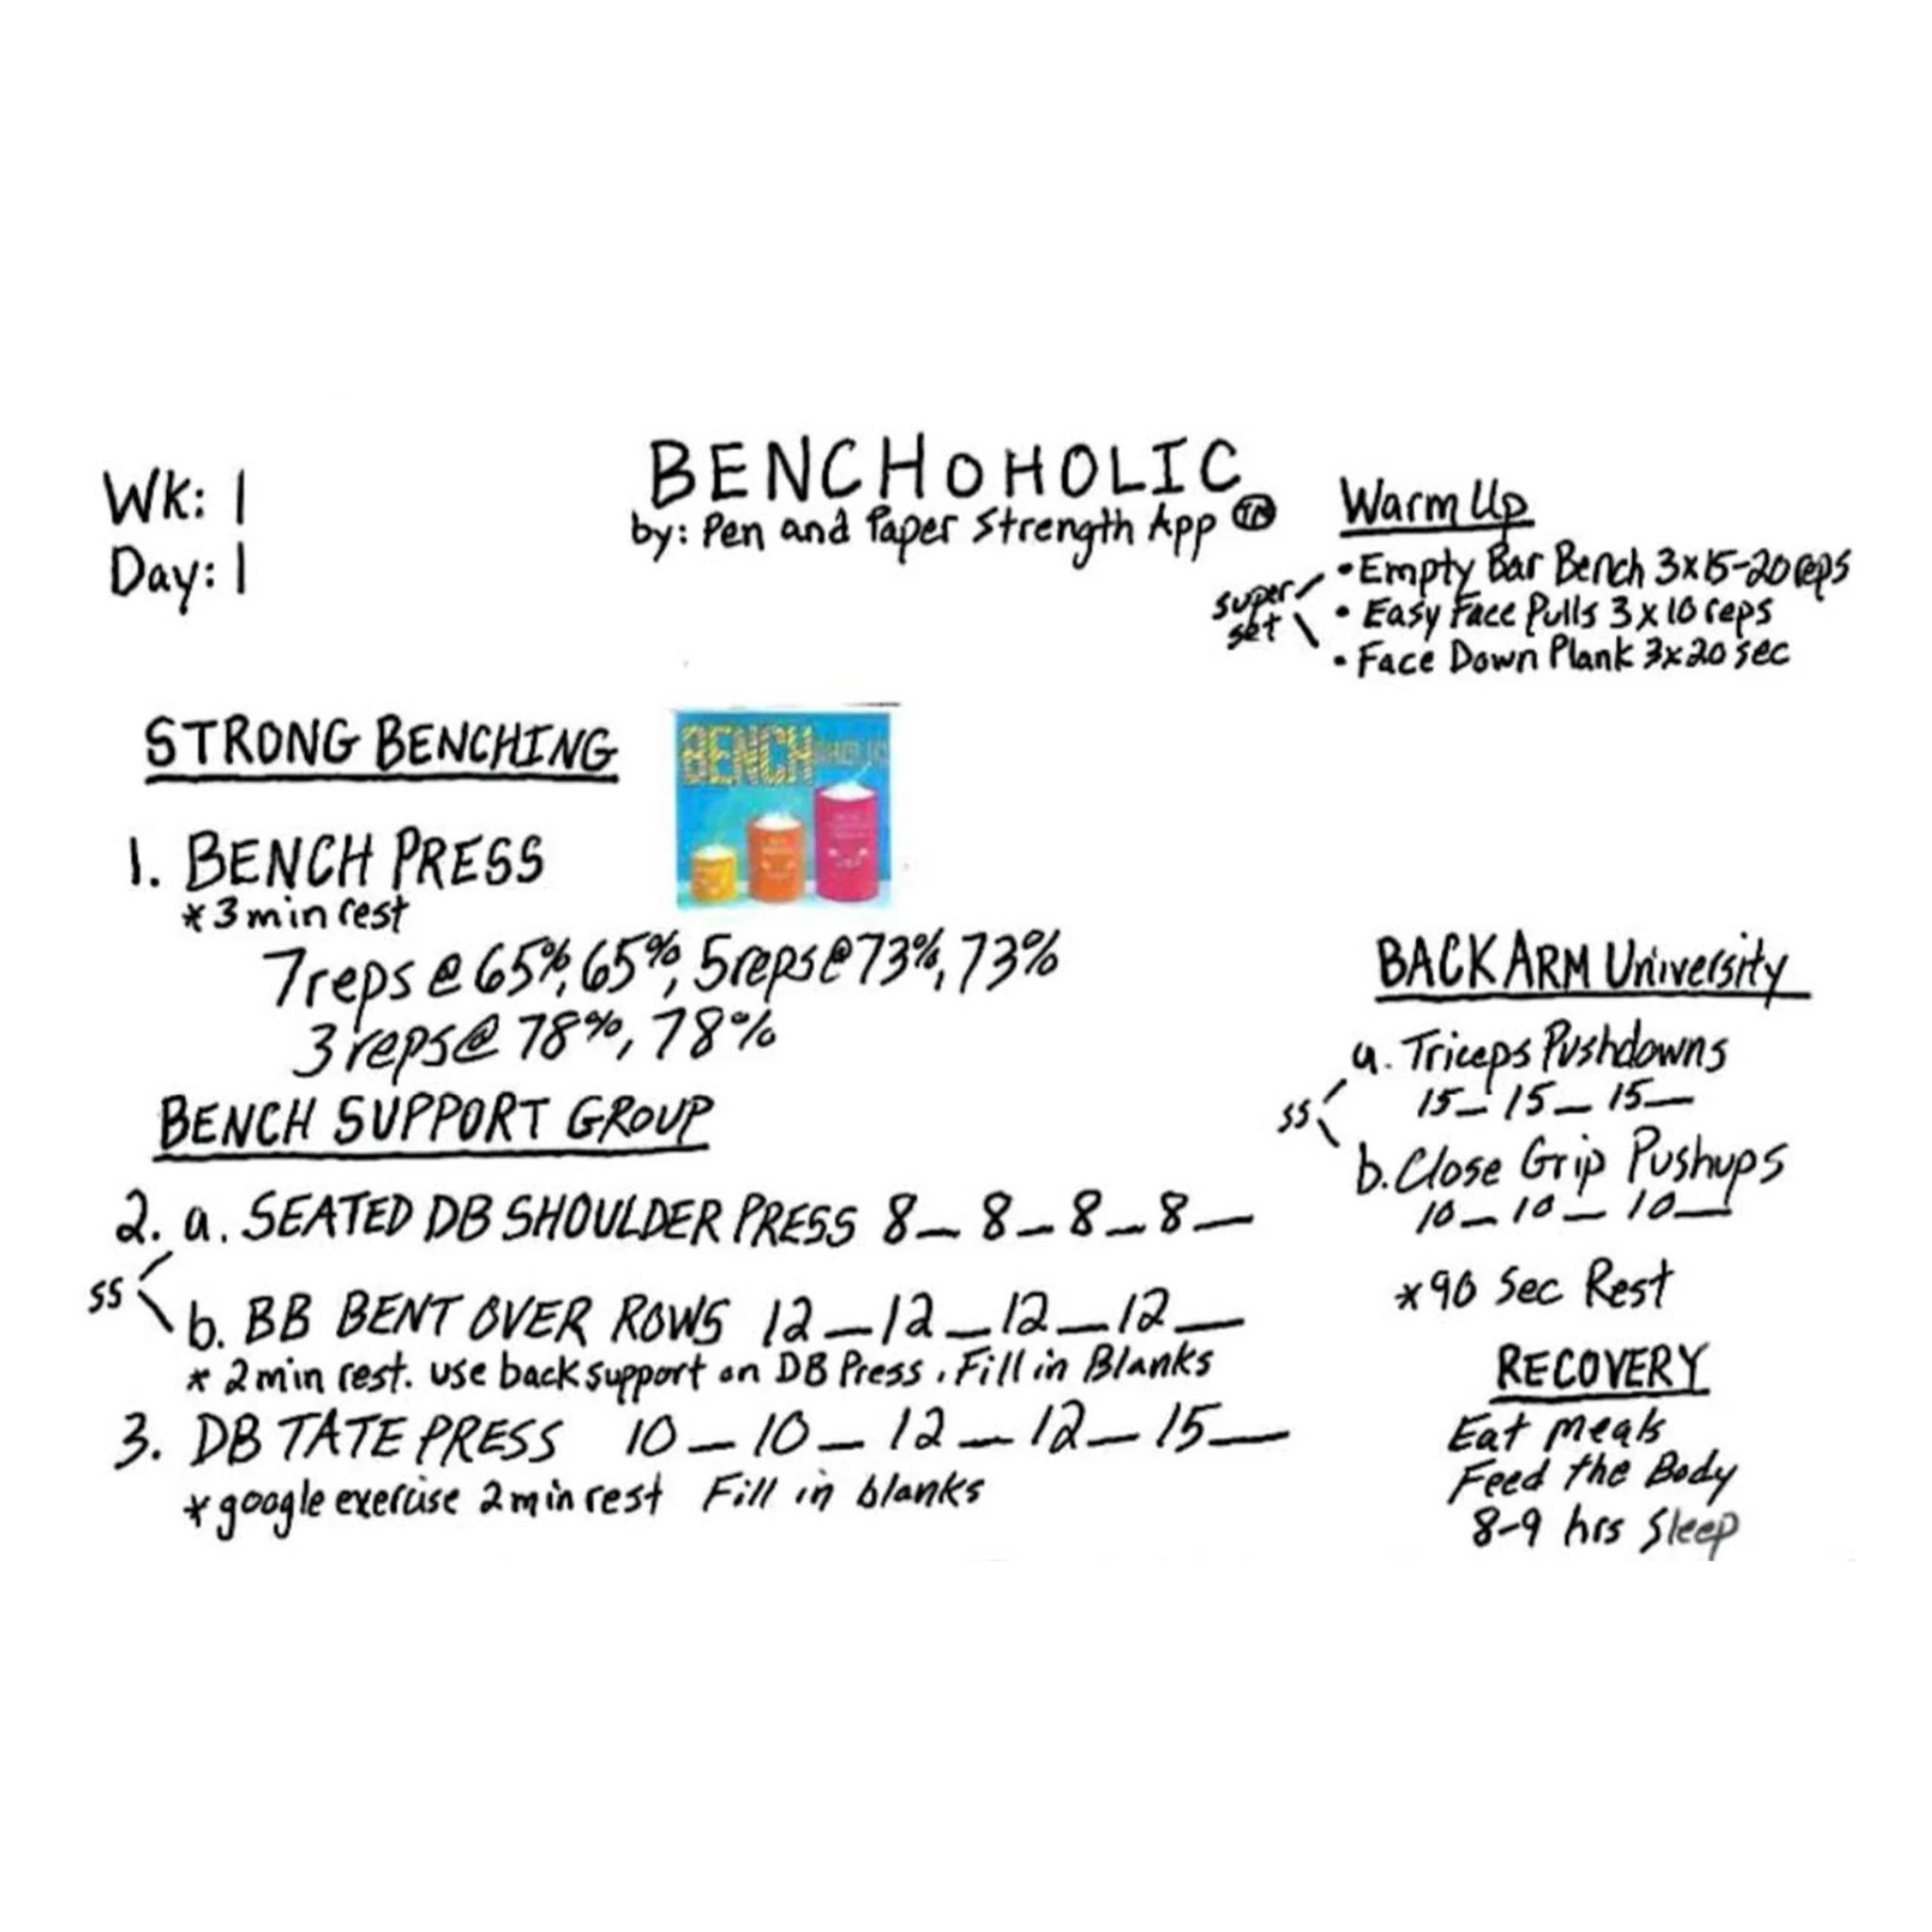 Wk: 1
Day: 1
BENCHOHOLIC
by: Pen and Paper Strength App TM
Warm Up
super set
• Empty Bar Bench 3x15-20 reps
• Easy Face Pulls 3x10 reps
• Face Down Plank 3x20 sec
STRONG BENCHING
BENCH
1. BENCH PRESS
* 3 min rest
7 reps @ 65%, 65%, 5 reps @ 73%, 73%
3 reps @ 78%, 78%
BENCH SUPPORT GROUP
2. a. SEATED DB SHOULDER PRESS 8_ 8_ 8_ 8_
ss
b. BB BENT OVER ROWS 12_ 12_ 12_ 12_
* 2 min rest. use back support on DB Press. Fill in Blanks
3. DB TATE PRESS 10_ 10_ 12_ 12_ 15_
* google exercise 2 min rest Fill in blanks
BACK ARM University
a. Triceps Pushdowns
15_ 15_ 15_
ss
b. Close Grip Pushups
10_ 10_ 10_
* 90 Sec Rest
RECOVERY
Eat meals
Feed the Body
8-9 hrs Sleep